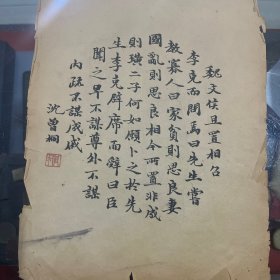 魏文侯且置相召
李克而問焉曰先生嘗
教寡人曰家貧則思良妻
國亂則思良相今所置非成
則璜二子何如願卜之於先
生李克辟席而辭曰臣
聞之卑不謀尊外不謀
內疏不謀戚
沈曾桐